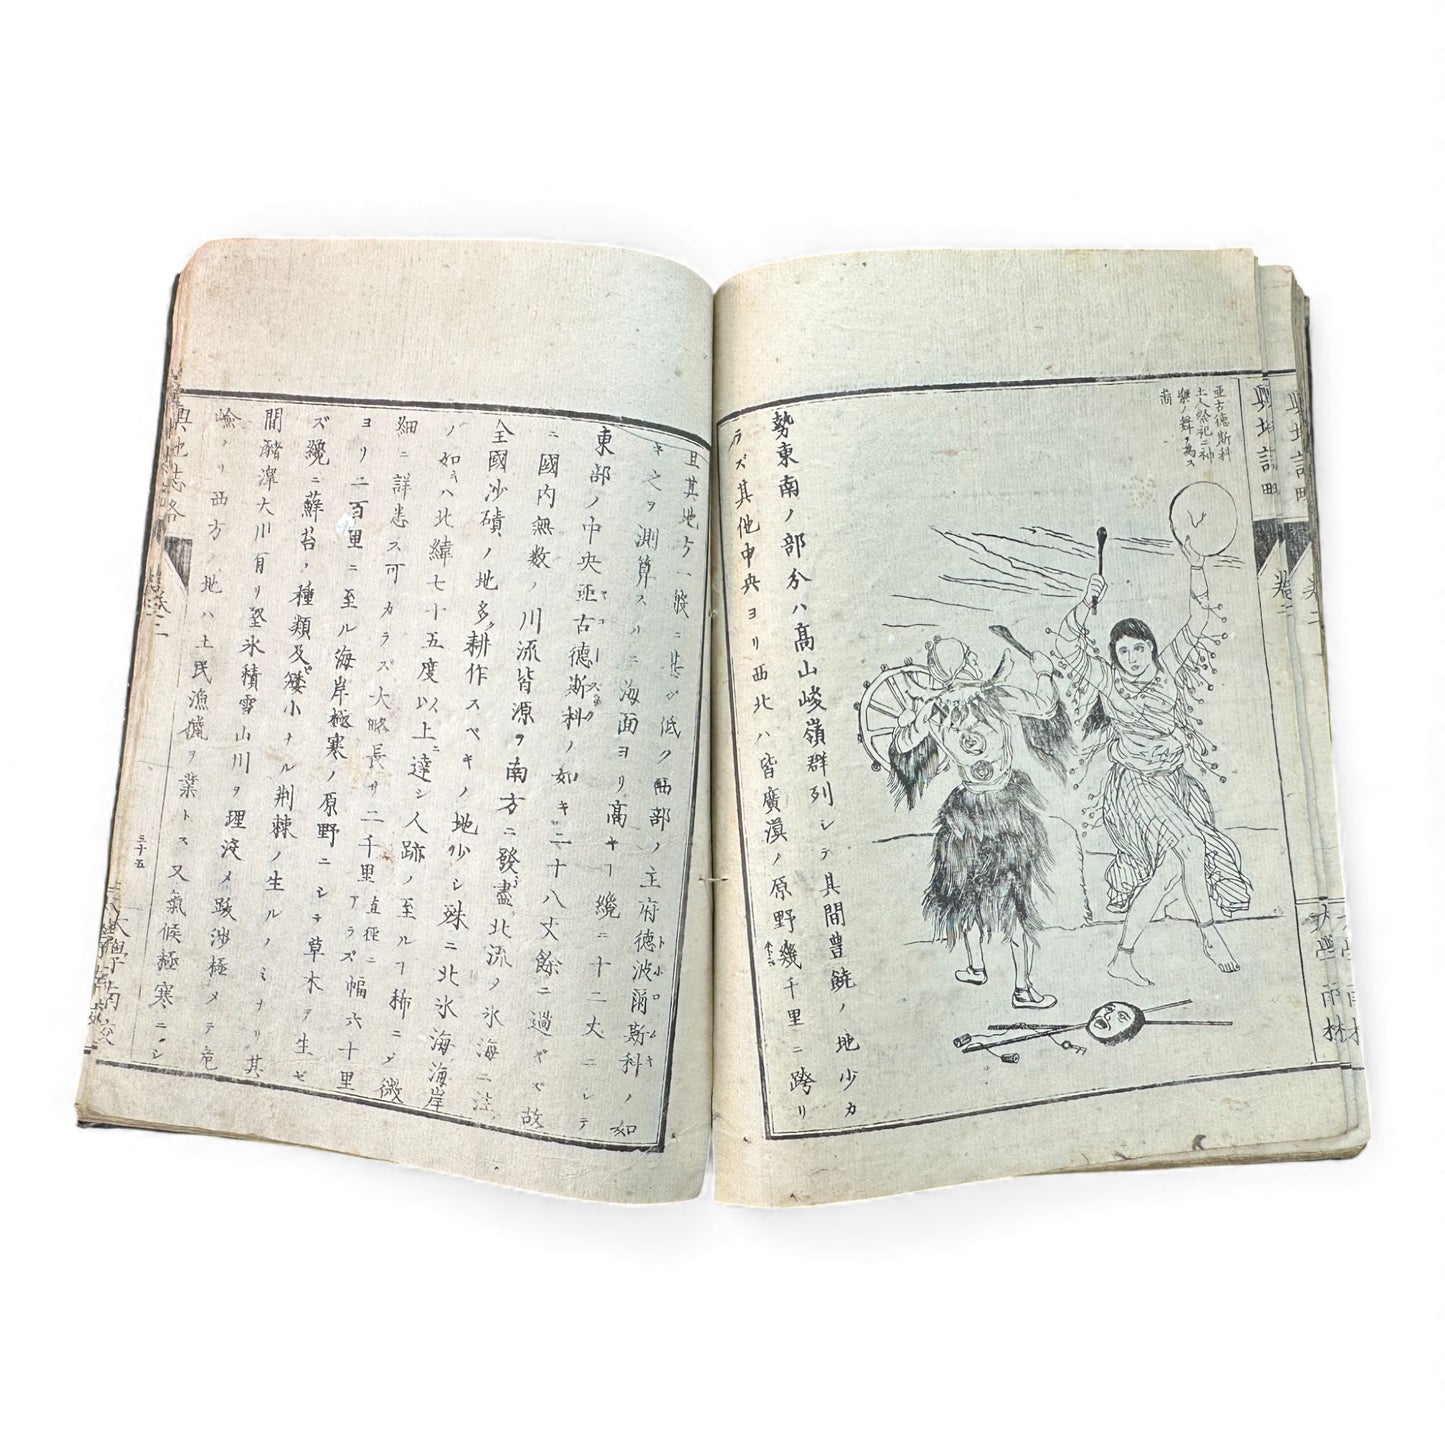 輿地誌畧
卷二
大學南校
亜古徳斯科
土人祭祀ニ神
樂ノ舞ヲ為ス
圖
勢東南ノ部分ハ髙山峻嶺群列シテ其間豊饒ノ地少カ
ラズ其他中央ヨリ西北ハ皆廣漠ノ原野幾千里ニ跨リ
且其地方一般ニ甚ダ低ク西部ノ主府徳波爾斯科ノ如
キ之ヲ測算スルニ海面ヨリ髙キヿ纔ニ十二丈ニシテ
東部ノ中央亜古徳斯科ノ如キ二十八丈餘ニ過ギズ故
ニ國内無数ノ川流皆源ヲ南方ニ發シ盡ク北流シ氷海ニ注グ
全國沙磧ノ地多ク耕作スベキノ地少シ殊ニ北氷海海岸
ノ如キハ北緯七十五度以上ニ達シ人跡ノ至ルヿ稀ニメ微
細ニ詳悉ス可カラズ大略長サ二千里直徑ニアラズ幅六十里
ヨリ二百里ニ至ル海岸極寒ノ原野ニシテ草木ヲ生ゼ
ズ纔ニ蘚苔ノ種類及ビ矮小ナル荆棘ノ生ルノミナリ其
間瀦澤大川有リ堅氷積雪山川ヲ埋没メ跋渉極メテ危
嶮ナリ西方ノ地ハ土民漁獵ヲ業トス又氣候極寒ニシ
輿地誌略
卷二
三十五
大學南校